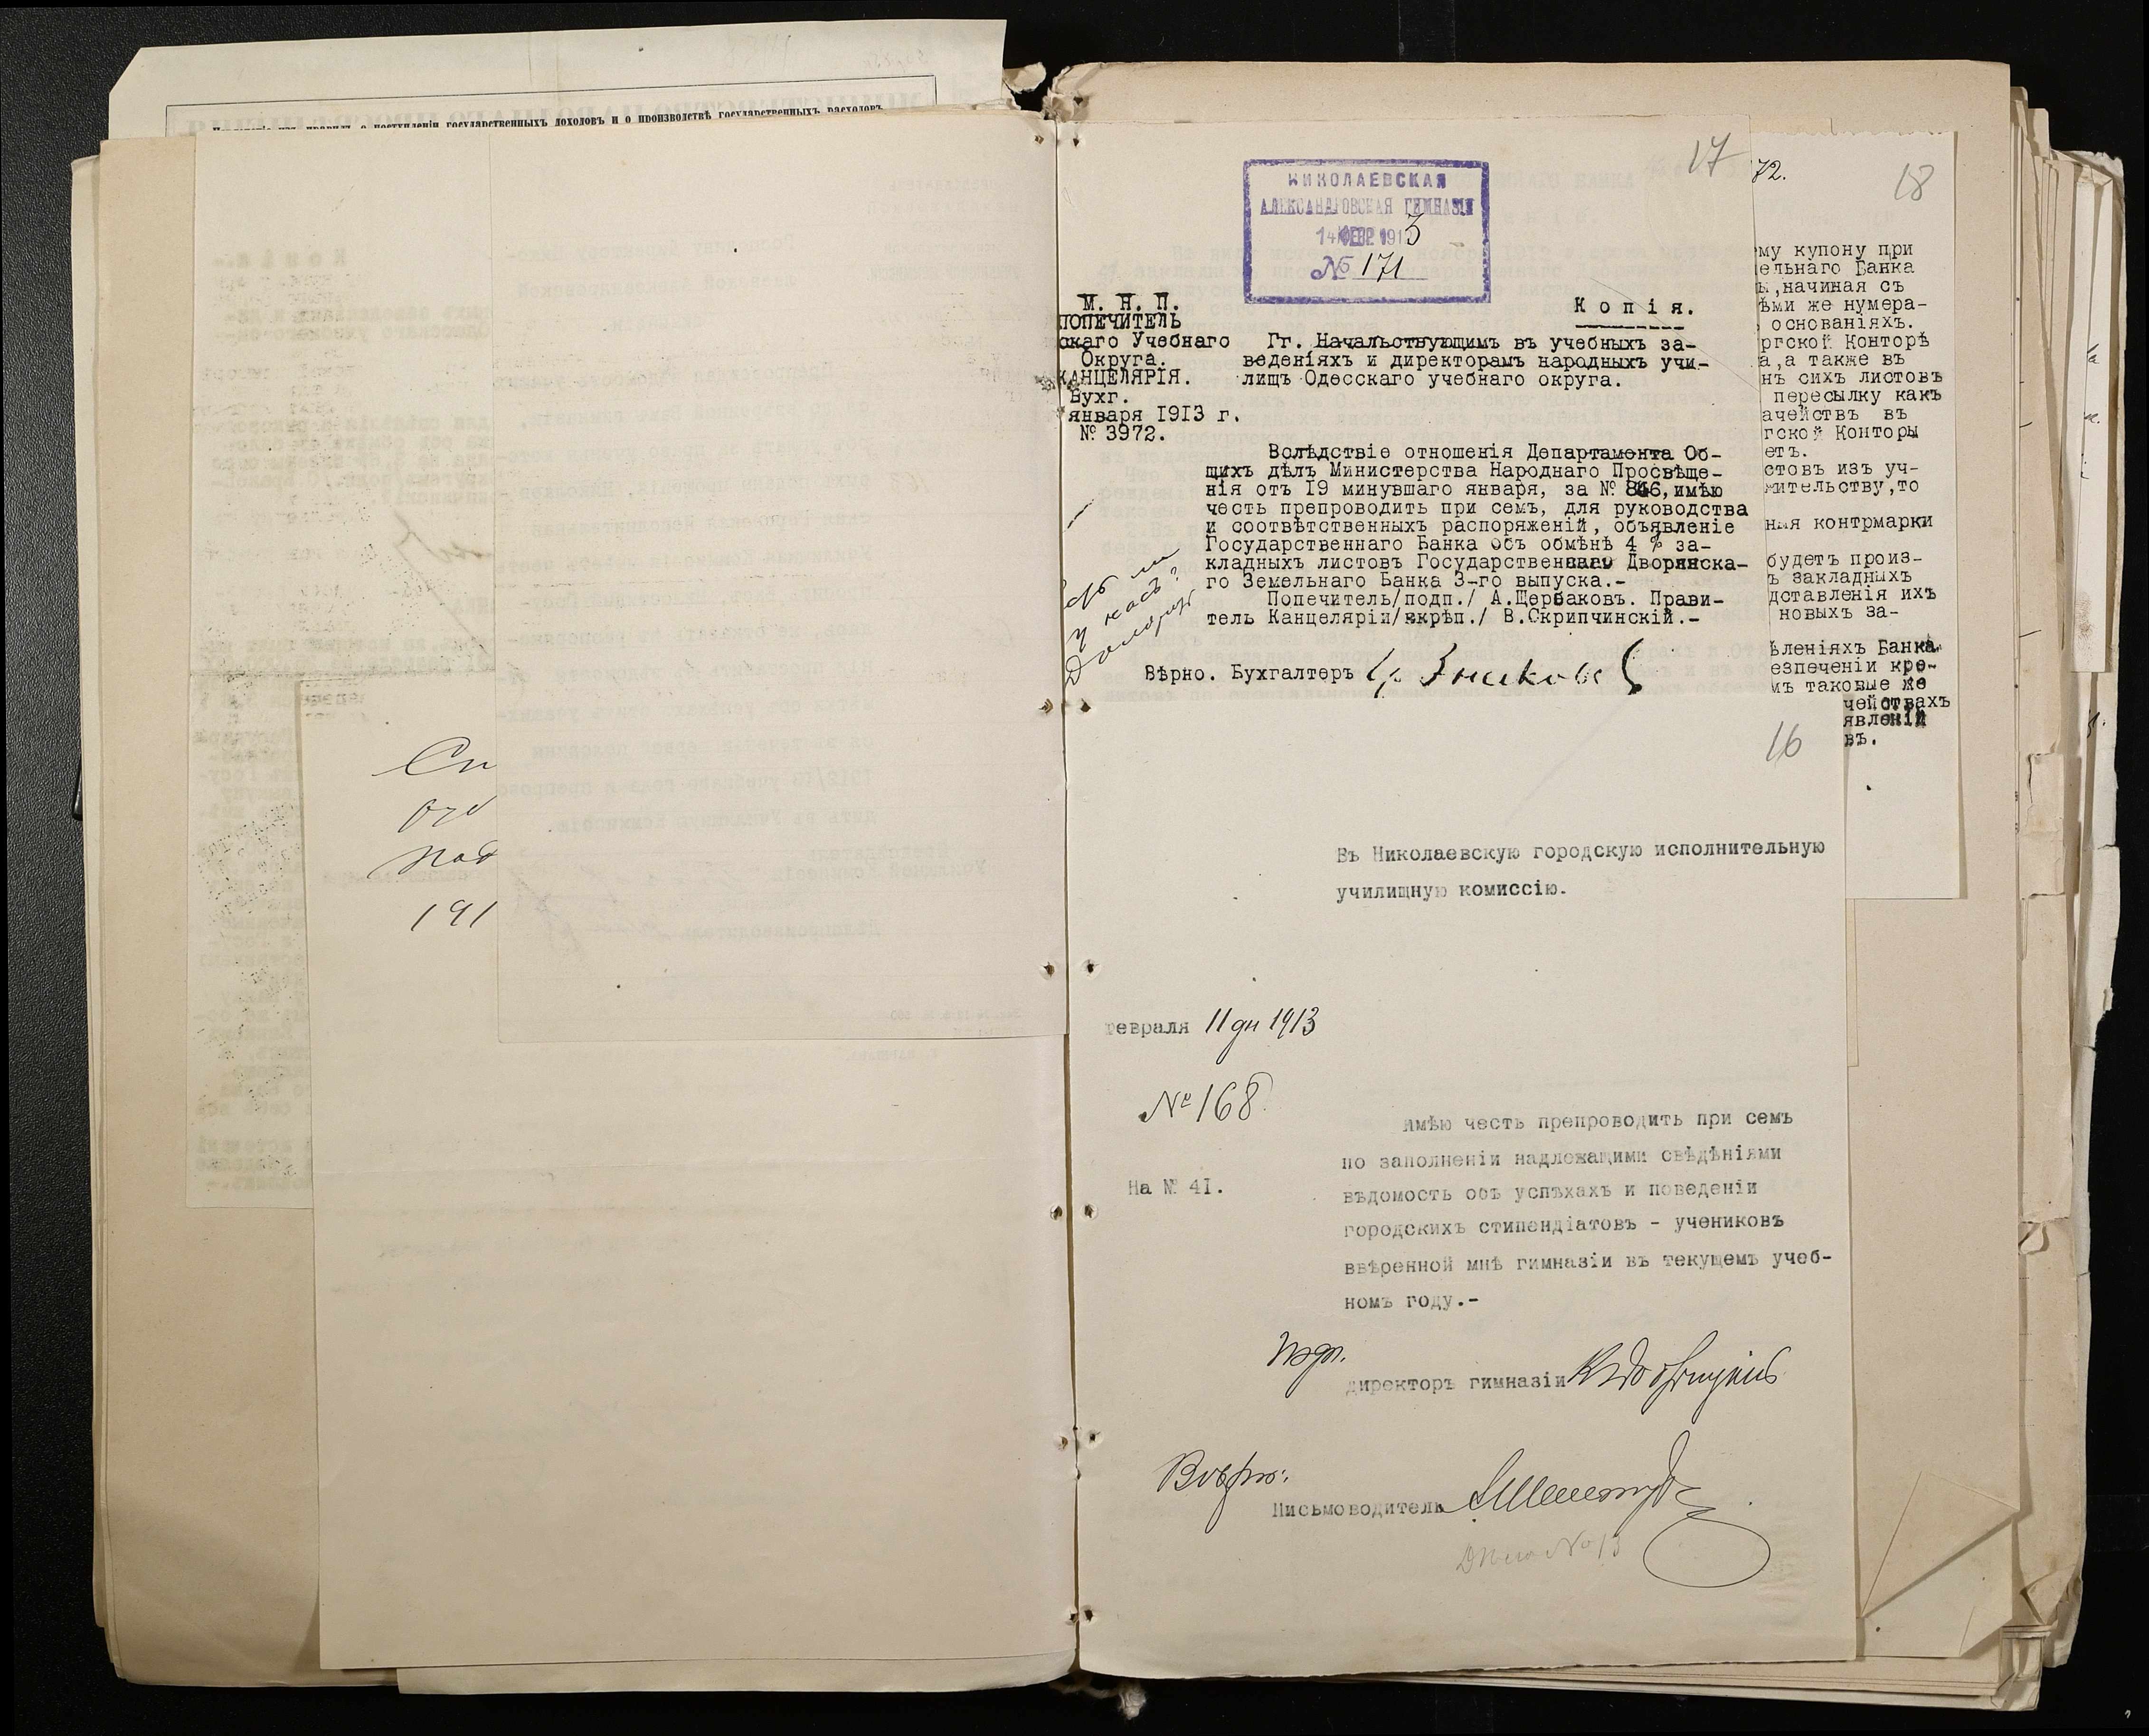 о поступленіи государственныхъ доходовъ и о производствѣ государственныхъ расходовъ
Сп
под
191
17
НИКОЛАЕВСКАЯ
АЛЕКСАНДРОВСКАЯ ГИМНАЗІЯ
14 ФЕВР 1913
№ 171
М. Н. П.
ПОПЕЧИТЕЛЬ
скаго Учебнаго
Округа.
КАНЦЕЛЯРІЯ.
Бухг.
января 1913 г.
№ 3972.
Копія.
Гг. Начальствующимъ въ учебныхъ за-
веденіяхъ и директорамъ народныхъ учи-
лищъ Одесскаго учебнаго округа.
Вслѣдствіе отношенія Департамента Об-
щихъ дѣлъ Министерства Народнаго Просвѣще-
нія отъ 19 минувшаго января, за № 846, имѣю
честь препроводить при семъ, для руководства
и соотвѣтственныхъ распоряженій, объявленіе
Государственнаго Банка объ обмѣнѣ 4 % за-
кладныхъ листовъ Государственнаго Дворянска-
го Земельнаго Банка 3-го выпуска.-
Попечитель/подп./ А.Щербаковъ. Прави-
тель Канцеляріи/скрѣп./ В.Скрипчинскій.-
Вѣрно. Бухгалтеръ
у насъ?
72.
18
му купону при
ельнаго Банка
ы,начиная съ
ѣми же нумера-
основаніяхъ.
ргской Конторѣ
а,а также въ
нъ сихъ листовъ
пересылку какъ
ачействъ въ
гской Конторы
етъ.
стовъ изъ уч-
жительству,то
ныя контрмарки
будетъ произ-
ъ закладныхъ
дставленія ихъ
новыхъ за-
ѣленіяхъ Банка
езпеченіи кре-
мъ таковые же
чействахъ
явленій
въ.
16
Въ Николаевскую городскую исполнительную
училищную комиссію.
февраля 11 дн 1913
№ 168
На № 41.
Имѣю честь препроводить при семъ
по заполненіи надлежащими свѣдѣніями
вѣдомость объ успѣхахъ и поведеніи
городскихъ стипендіатовъ - учениковъ
ввѣренной мнѣ гимназіи въ текущемъ учеб-
номъ году.-
директоръ гимназіи
Вѣрно:
Письмоводитель
№ 13